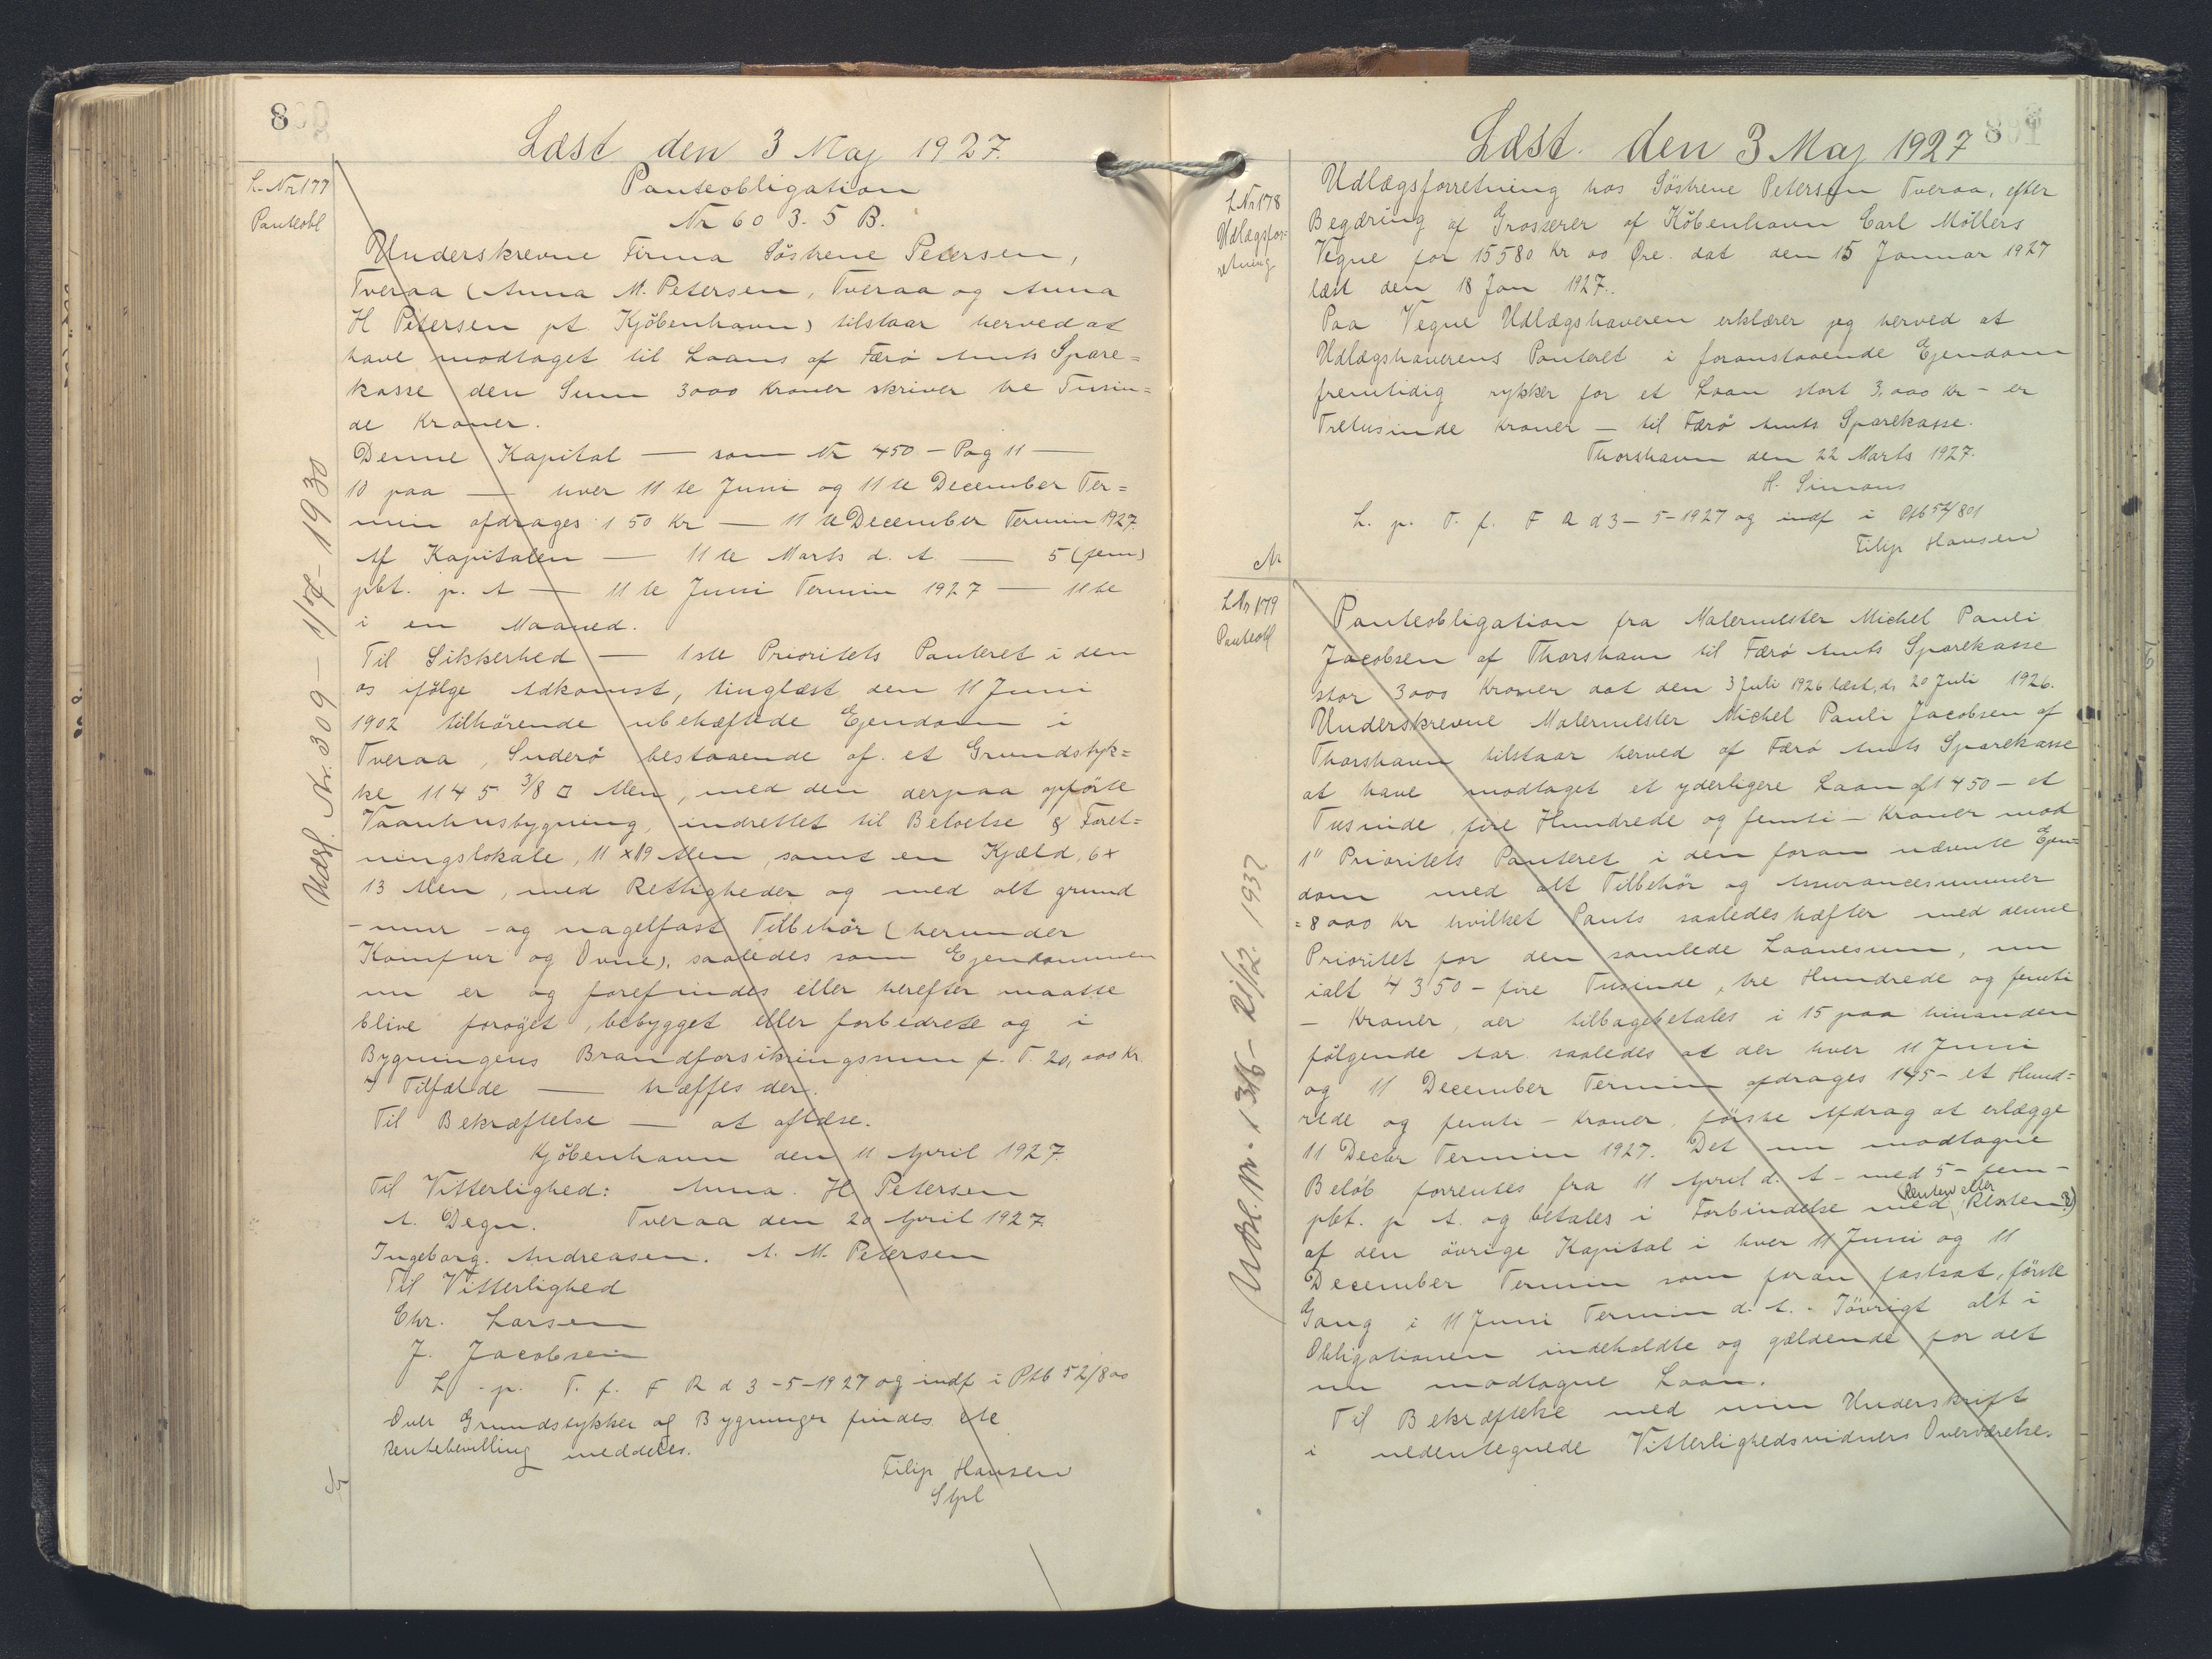 8
Læst den 3 Maj 1927.
L. Nr 177
Panteobl
Panteobligation
Nr 60 3. 5 B.
Underskrevne Firma Söstrene Petersen,
Tveraa (Anna M. Petersen, Tveraa og Anna
H Petersen pt. Kjöbenhavn) tilstaar herved at
have modtaget til Laans af Færö Amts Spare=
kasse den Sum 3000 Kroner skriver tre Tusin=
de Kroner.
Denne Kapital — som Nr 450 — Pag 11 —
10 paa — hver 11 te Juni og 11 te December Ter=
min afdrages 150 Kr — 11 te December Termin 1927.
Af Kapitalen — 11 te Marts d. A — 5 (fem)
pct. p. A — 11 te Juni Termin 1927 — 11 te
i en Maaned.
Til Sikkerhed — 1ste Prioritets Panteret i den
os ifölge Adkomst, tinglæst den 11 Juni
1902 tilhörende ubehæftede Ejendom i
Tveraa, Suderö bestaaende af et Grundstyk=
ke 1145 3/8 □ Alen, med den derpaa opförte
Vaanhusbygning, indrettet til Beboelse & Foret=
ningslokale, 11 x 19 Alen, samt en Kjæld, 6 x
13 Alen, med Rettigheder og med alt grund
- mur - og nagelfast Tilbehör (herunder
Komfur og Ovne), saaledes som Ejendommen
nu er og forefindes eller herefter maatte
blive foröget, bebygget eller forbedrete og i
Bygningens Brandforsikringssum f. T. 20,000 Kr.
I Tilfælde — træffes der.
Til Bekræftelse — at aflæse.
Kjöbenhavn den 11 April 1927.
Til Vitterlighed: Anna. H. Petersen
A. Degn. Tveraa den 20 April 1927.
Ingeborg. Andreasen. A. M. Petersen
Til Vitterlighed
Chr. Larsen
J. Jacobsen
L. p. T. f. F R d 3-5-1927 og indf i Ptb 52/800
Over Grundstykker og Bygninger findes
meddeles.
Filip Hansen
Udsl. Nr. 309 — 1930
Læst. den 3 Maj 1927
L Nr 178
Udlægsfor=
retning
Udlægsforretning hos Söstrene Petersen Tveraa, efter
Begæring af Grosserer af Köbenhavn Carl Möllers
Vegne for 15580 Kr 00 Øre. dat den 15 Januar 1927
læst den 18 Jan 1927.
Paa Vegne Udlægshaveren erklærer jeg herved at
Udlægshaverens Panteret i foranstaaende Ejendom
fremtidig rykker for et Laan stort 3,000 Kr — er
Tretusinde Kroner — til Færö Amts Sparekasse.
Thorshavn den 22 Marts 1927.
H. Simons
L. p. T. f. F R d 3-5-1927 og indf i Ptb 52/801
Filip Hansen
L Nr 179
Panteobl
Panteobligation fra Malermester Michel Pauli
Jacobsen af Thorshavn til Færö Amts Sparekasse
stor 3000 Kroner dat den 3 Juli 1926 læst, d. 20 Juli 1926.
Underskrevne Malermester Michel Pauli Jacobsen af
Thorshavn tilstaar herved af Færö Amts Sparekasse
at have modtaget et yderligere Laan af 1450 — et
Tusinde, fire Hundrede og femti — Kroner mod
1" Prioritets Panteret i den foran nævnte Ejen=
dom med alt Tilbehör og Assurancesummer
= 8000 Kr hvilket Pants saaledes hæfter med denne
Prioritet for den samlede Laanesum, nu
ialt 4350 — fire Tusinde, tre Hundrede og femti
— Kroner, der tilbagebetales i 15 paa hinanden
fölgende Aar. saaledes at der hver 11 Juni
og 11 December Termin afdrages 145 — et Hund=
rede og femti — Kroner, förste Afdrag at erlægge
11 Decbr Termin 1927. Det nu modtagne
Belöb forrentes fra 11 April d. A — med 5 — fem —
pct. p A. og betales i Forbindelse med Renten eller Resten (?)
af den övrige Kapital i hver 11 Juni og 11
December Termin som foran fastsat, förste
Gang i 11 Juni Termin d. A. - Iövrigt alt i
Obligationen indeholdte og gældende for det
nu modtagne Laan.
Til Bekræftelse med min Underskrift
i nedentegnede Vitterlighedsvidners Overværelse.
Udsl. Nr. 1316 — 21/12. 1932